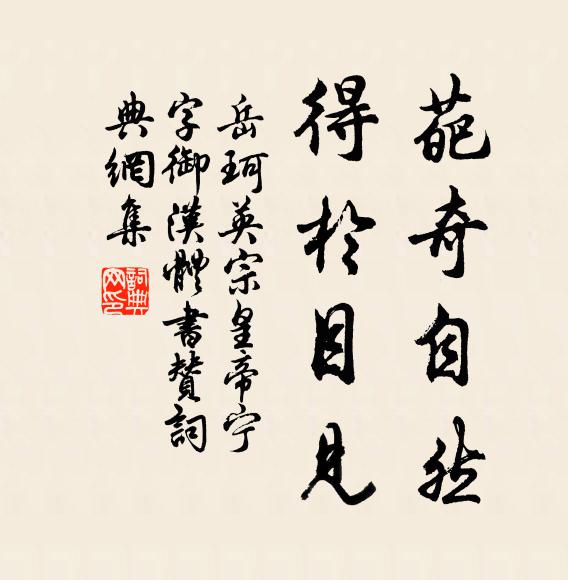 葩奇自然
得於目見
岳珂英宗皇帝宁
字御漢體書贊詞
典網集
詞典網印